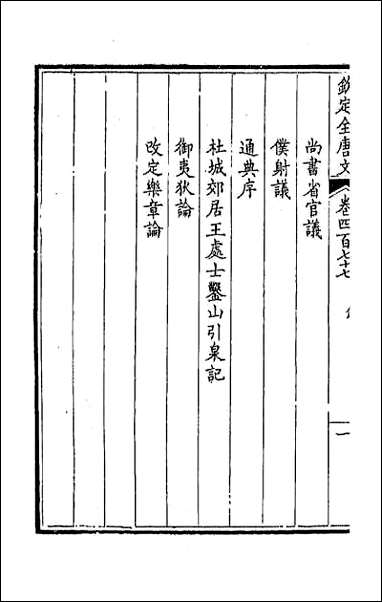 欽定全唐文 卷四百七十七
一
尚書省官議
僕射議
通典序
杜城郊居王處士鑿山引泉記
禦夷狄論
改定樂章論